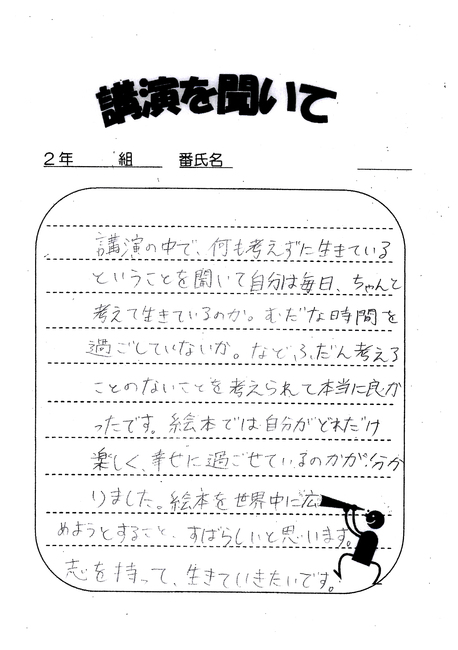 講演を聞いて
2年　組　番氏名
講演の中で、何も考えずに生きている
ということを聞いて自分は毎日、ちゃんと
考えて生きているのか。むだな時間を
過ごしていないか。など、ふだん考える
ことのないことを考えられて本当に良か
ったです。絵本では自分がどれだけ
楽しく、幸せに過ごせているのかが分か
りました。絵本を世界中に広
めようとすること、すばらしいと思います。
志を持って、生きていきたいです。